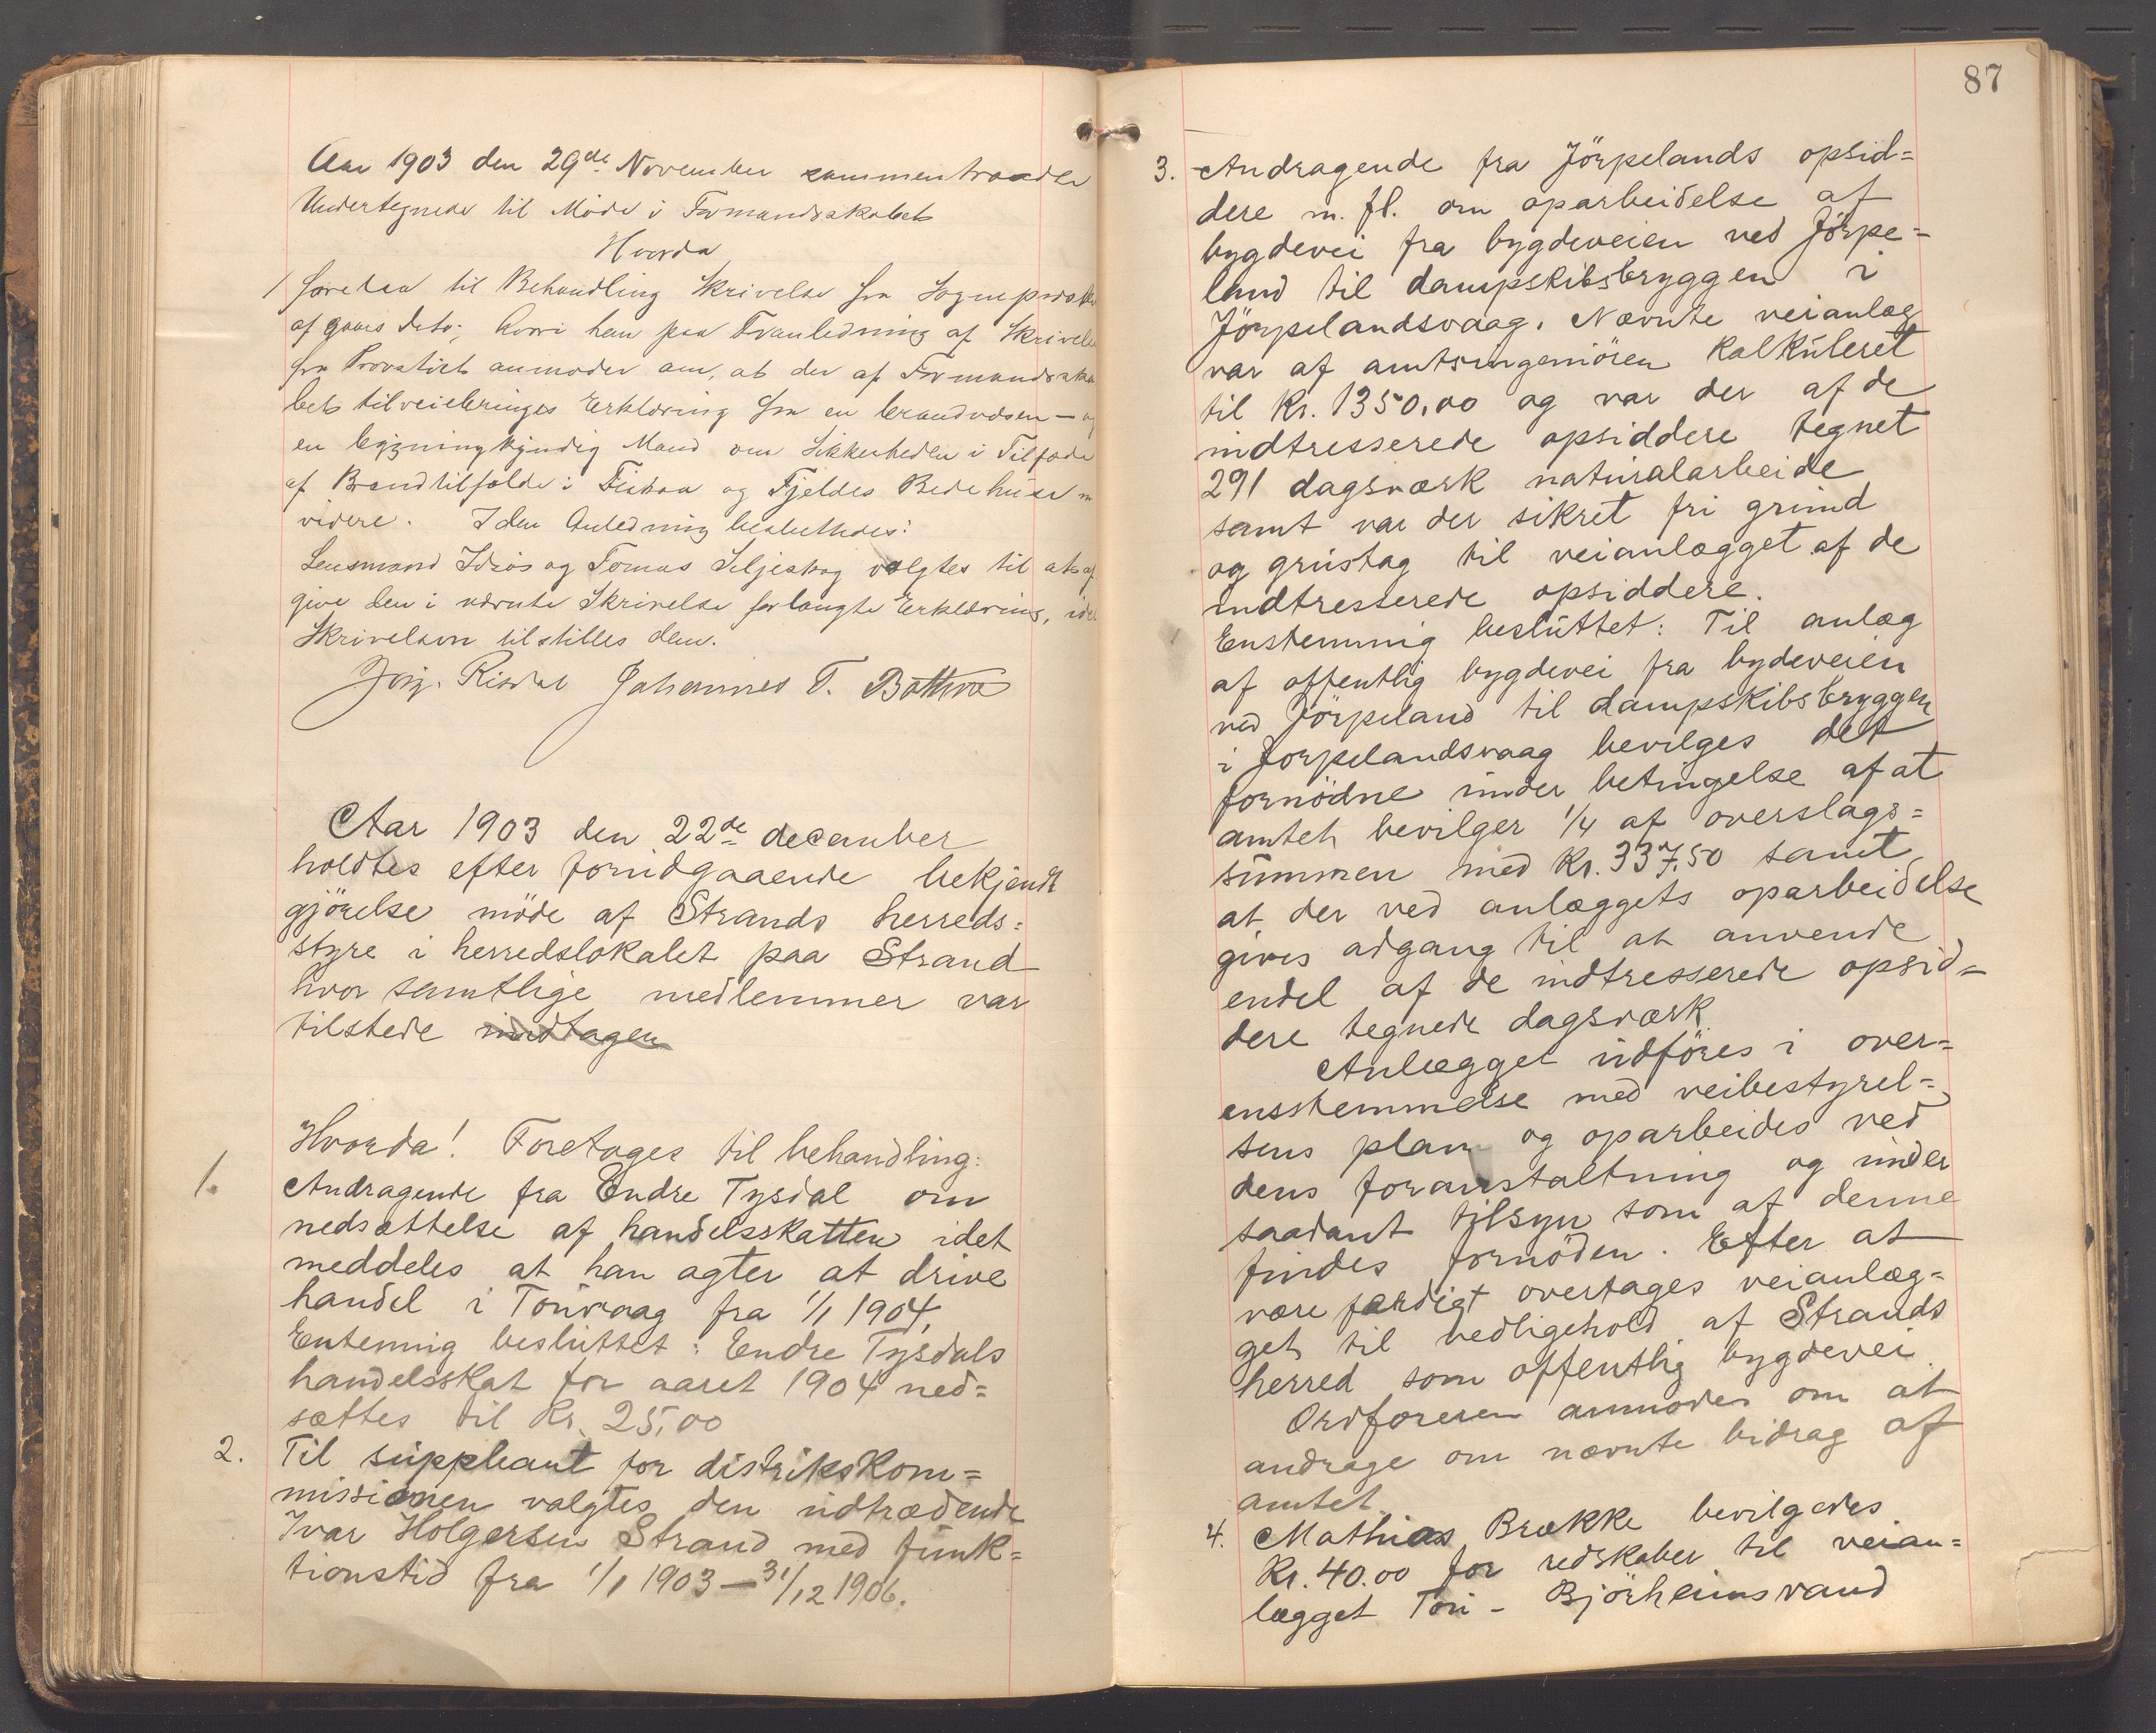 Aar 1903 den 29de November sammentraadte
Undertegnede til Møde i Formandsskabet
Hvorda
1 foretaa til Behandling Skrivelse fra Sognepræsten
af gaars dato; hvori han paa Foranledning af Skrivelse
fra Provstiet anmoder om, at der af Formandsska
bet tilveiebringes Erklæring fra en brandvæsen- og
en bygningkyndig Mand om Sikkerheden i Tilfælde
af Brandtilfælde i Fiskaa og Fjeldes Bedehuse m
videre. I den Anledning besluttedes:
Lensmand Idsøs og Tomas Seljeskog valgtes til at af
give den i nævnte Skrivelse forlangte Erklæring, idet
Skrivelsen tilstilles dem.
Jørg. Risdal Johannes T. Bøttvre
Aar 1903 den 22de december
holdtes efter forudgaaende bekjendt
gjørelse møde af Strands herreds=
styre i herredslokalet paa Strand
hvor samtlige medlemmer var
tilstede undtagen
Hvorda! Foretages til behandling:
1. Andragende fra Endre Tysdal om
nedsættelse af handelsskatten idet
meddeles at han agter at drive
handel i Touvaag fra 1/1 1904,
Entemig besluttet: Endre Tysdals
handelsskat for aaret 1904 ned=
sættes til Kr. 25,00
2. Til suppleant for distrikskom=
missionen valgtes den udtrædende
Ivar Holgersen Strand med funk=
tionstid fra 1/1 1903 — 31/12 1906.
87
3. Andragende fra Jörpelands opsid=
dere m. fl. om oparbeidelse af
bygdevei fra bygdeveien ved Jörpe=
land til dampskibsbryggen i
Jörpelandsvaag. Nævnte veianlæg
var af amtsingeniören kalkuleret
til Kr. 1350,00 og var der af de
indtresserede opsiddere tegnet
291 dagsværk naturalarbeide
samt var der sikret fri grund
og grustag til veianlægget af de
indtresserede opsiddere.
Enstemmig besluttet: Til anlæg
af offentlig bygdevei fra bydeveien
ved Jörpeland til dampskibsbryggen
i Jorpelandsvaag bevilges det
fornödne under betingelse af at
amtet bevilger 1/4 af overslags=
summen med Kr. 337,50 samt
at der ved anlæggets oparbeidelse
gives adgang til at anvende
endel af de indtresserede opsid=
dere tegnede dagsværk.
Anlægget udföres i over=
ensstemmelse med veibestyrel=
sens plan og oparbeides ved
dens foranstaltning og under
saadant tilsyn som af denne
findes fornöden. Efter at
være færdigt overtages veianlæg=
get til vedligehold af Strands
herred som offentlig bygdevei.
Ordføreren anmodes om at
andrage om nævnte bidrag af
amtet.
4. Mathias Brække bevilgedes
Kr. 40.00 for redskaber til veian=
lægget Tou - Björheimsvand